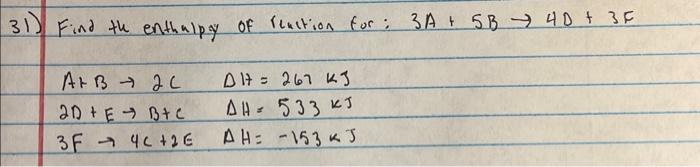 31) Find the enthalpy of reaction for: 3A + 5B → 4D + 3F
A+B → 2C ΔH = 267 KJ
2D + E → B+C ΔH = 533 KJ
3F → 4C +2E ΔH = -153 KJ